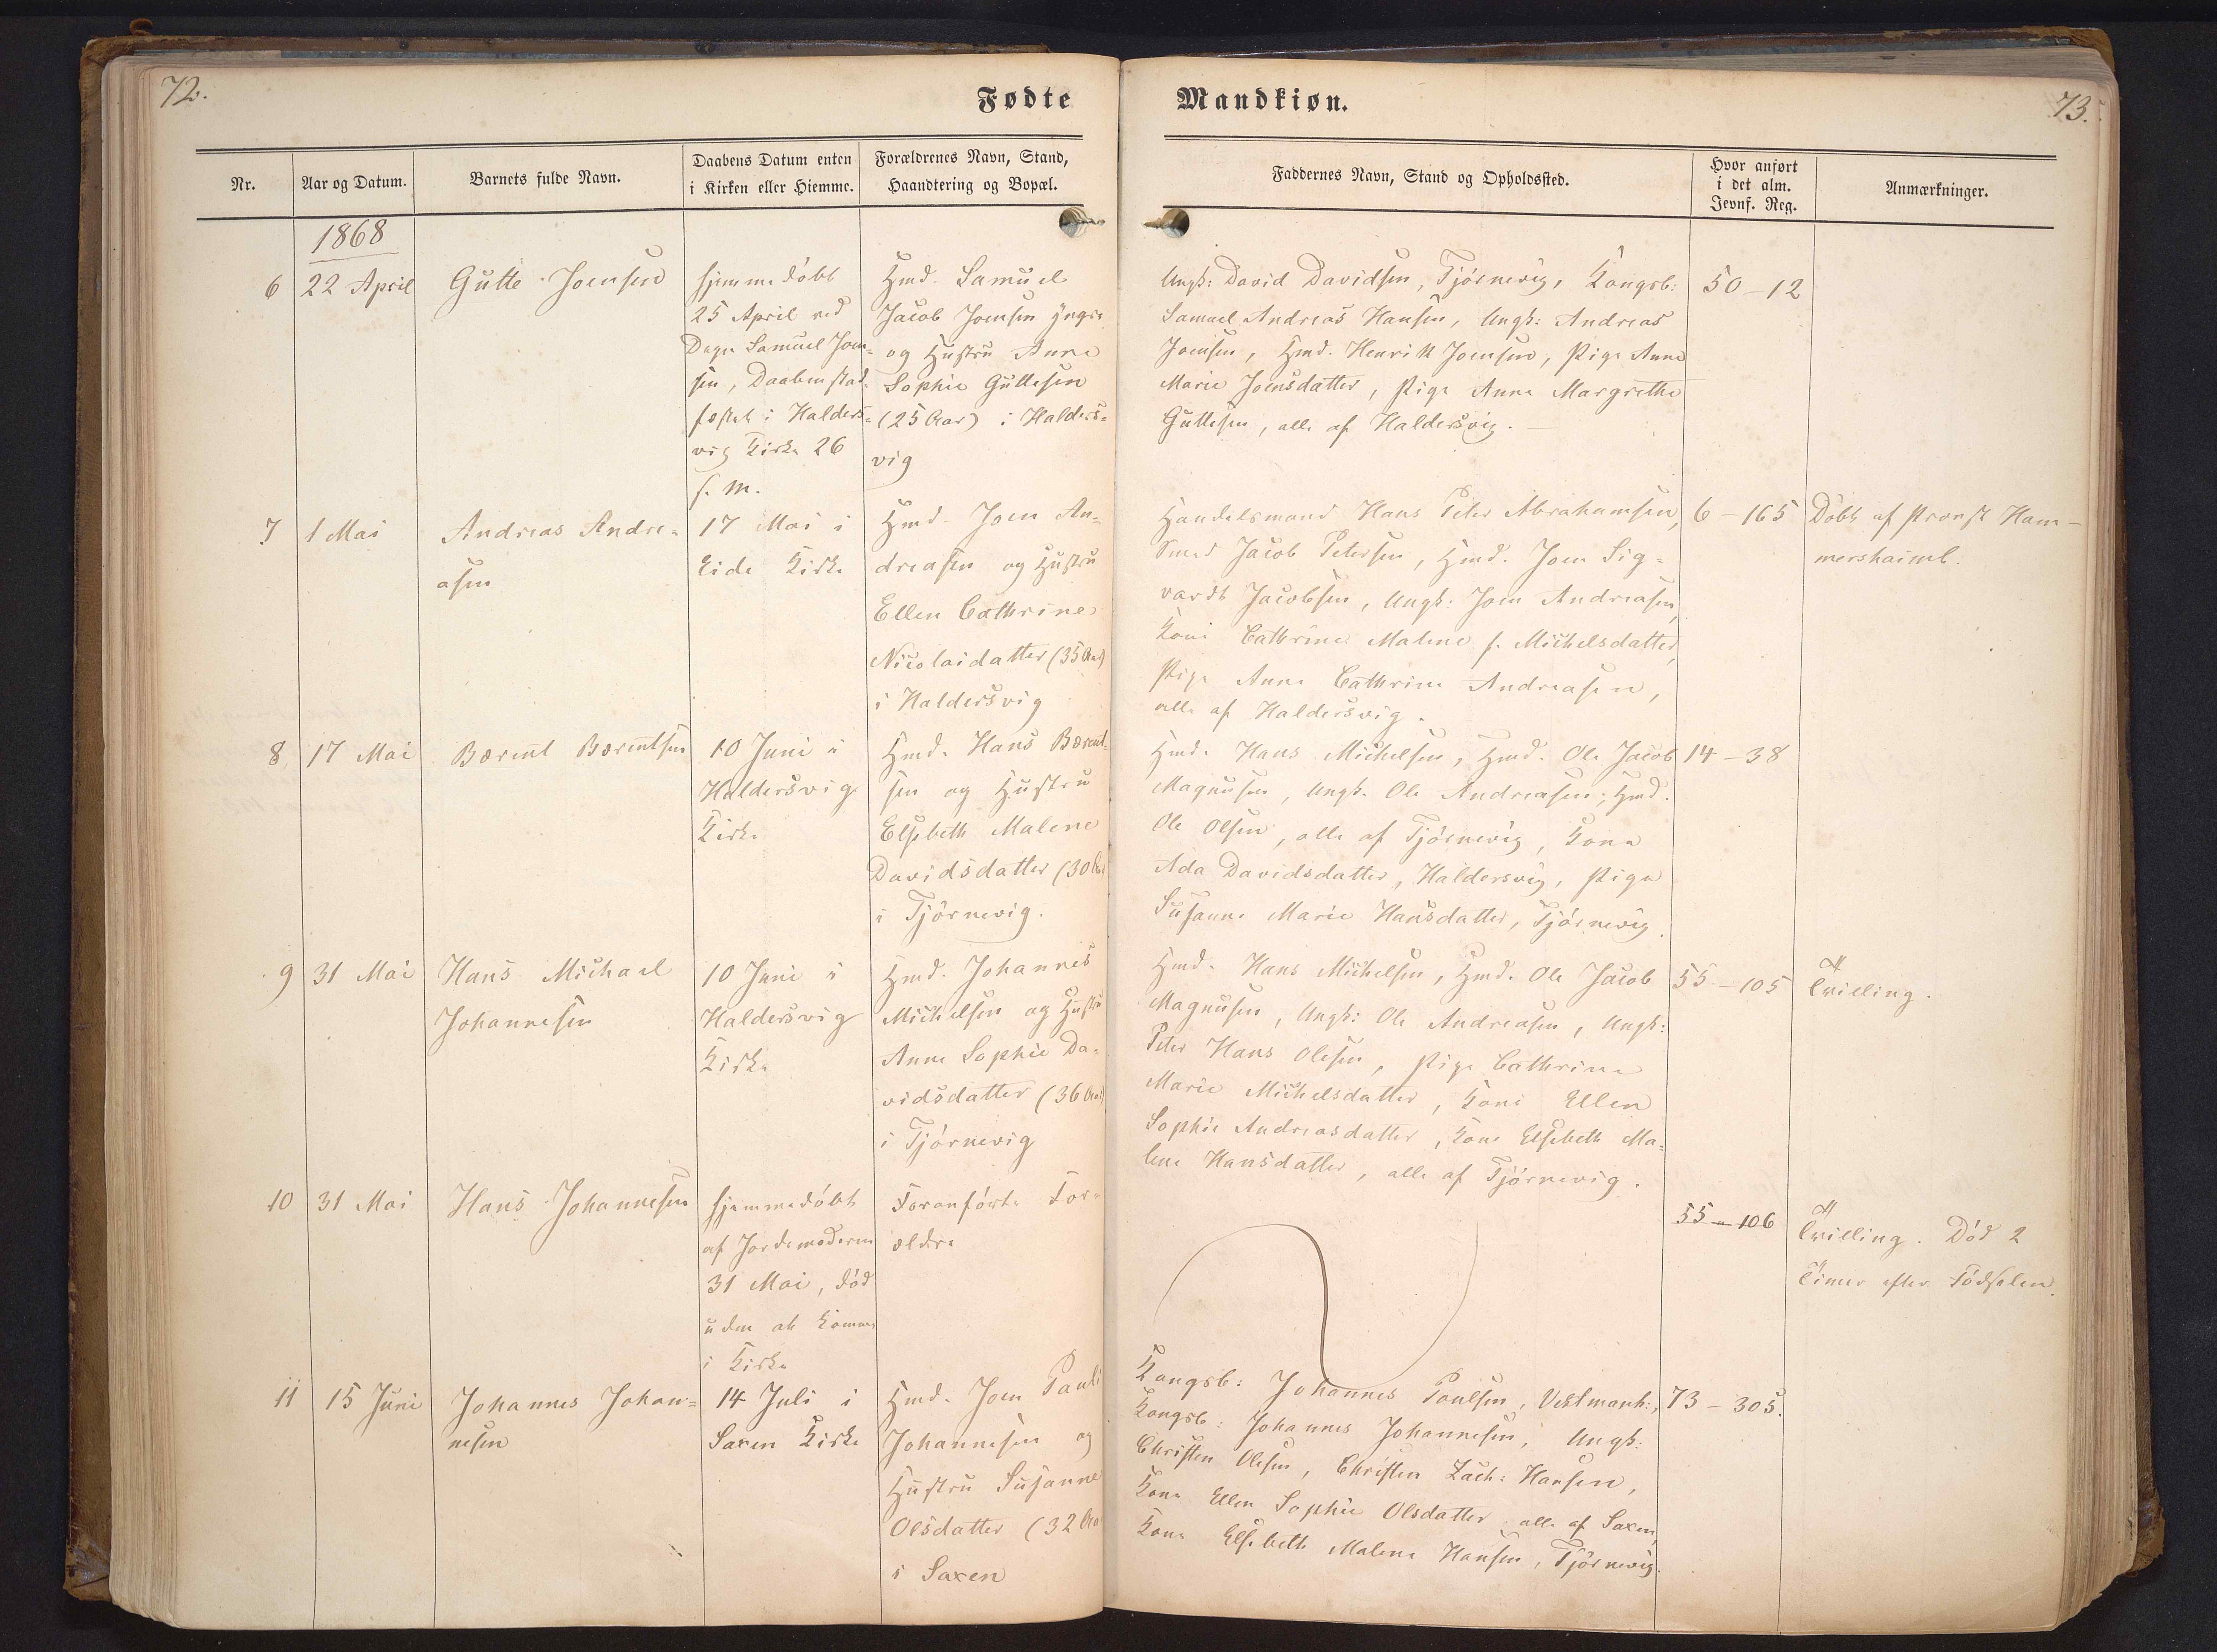 72.
Fødte
Nr.
Aar og Datum.
Barnets fulde Navn.
Daabens Datum enten
i Kirken eller Hiemme.
Forældrenes Navn, Stand,
Haandtering og Bopæl.
1868
6
22 April
Gutte Joensen
hjemmedøbt
25 April ved
Degn Samuel Joen-
sen, Daaben stad-
fæstet i Halders-
vig Kirke 26
s. M.
Hmd. Samuel
Jacob Joensen yngre
og Hustru Anne
Sophie Guttesen
(25 Aar) i Halders-
vig
7
1 Mai
Andreas Andre-
asen
17 Mai i
Eide Kirke
Hmd. Joen An-
dreasen og Hustru
Ellen Cathrine
Nicolaidatter (35 Aar)
i Haldersvig
8
17 Mai
Bærent Bærentsen
10 Juni i
Haldersvig
Kirke
Hmd. Hans Bærent-
sen og Hustru
Elsebeth Malene
Davidsdatter (30 Aar)
i Tjørnevig.
9
31 Mai
Hans Michael
Johannesen
10 Juni i
Haldersvig
Kirke
Hmd. Johannes
Michelsen og Hustru
Anne Sophie Da-
vidsdatter (36 Aar)
i Tjørnevig
10
31 Mai
Hans Johannesen
hjemmedøbt
af Jordemoderen
31 Mai, død
uden at komme
i Kirke
Foranførte For-
ældre
11
15 Juni
Johannes Johan-
nesen
14 Juli i
Saxen Kirke
Hmd. Joen Pauli
Johannesen og
Hustru Susanne
Olsdatter (32 Aar
i Saxen
Mandkiøn.
73.
Faddernes Navn, Stand og Opholdssted.
Hvor anført
i det alm.
Jevnf. Reg.
Anmærkninger.
Ungk: David Davidsen, Tjørnevig, Kongsb:
Samuel Andreas Hansen, Ungk: Andreas
Joensen, Hmd. Henrik Joensen, Pige Anne
Marie Joensdatter, Pige Anne Margrethe
Guttesen, alle af Haldersvig.
50 - 12
Handelsmand Hans Peter Abrahamsen,
Smed Jacob Petersen, Hmd. Joen Sig-
vardt Jacobsen, Ungk: Joen Andreasen,
Kone Cathrine Malene f. Michelsdatter,
Pige Anne Cathrine Andreasen,
alle af Haldersvig.
6 - 165
Døbt af Provst Ham-
mershaimb.
Hmd. Hans Michelsen, Hmd. Ole Jacob
Magnusen, Ungk. Ole Andreasen, Hmd.
Ole Olsen, alle af Tjørnevig, Kone
Ada Davidsdatter, Haldersvig, Pige
Susanne Marie Hansdatter, Tjørnevig.
14 - 38
Hmd. Hans Michelsen, Hmd. Ole Jacob
Magnusen, Ungk: Ole Andreasen, Ungk:
Peter Hans Olesen, Pige Cathrine
Marie Michelsdatter, Kone Ellen
Sophie Andreasdatter, Kone Elsebeth Ma-
lene Hansdatter, alle af Tjørnevig.
55 - 105
Tvilling.
55 - 106
Tvilling. Død 2
Timer efter Fødselen.
Kongsb: Johannes Poulsen, Vestmanh:,
Kongsb: Johannes Johannesen, Ungk:
Christen Olesen, Christen Zach: Hansen,
Kone Ellen Sophie Olsdatter alle af Saxen,
Kone Elsebeth Malene Hansen, Tjørnevig.
73 - 305.